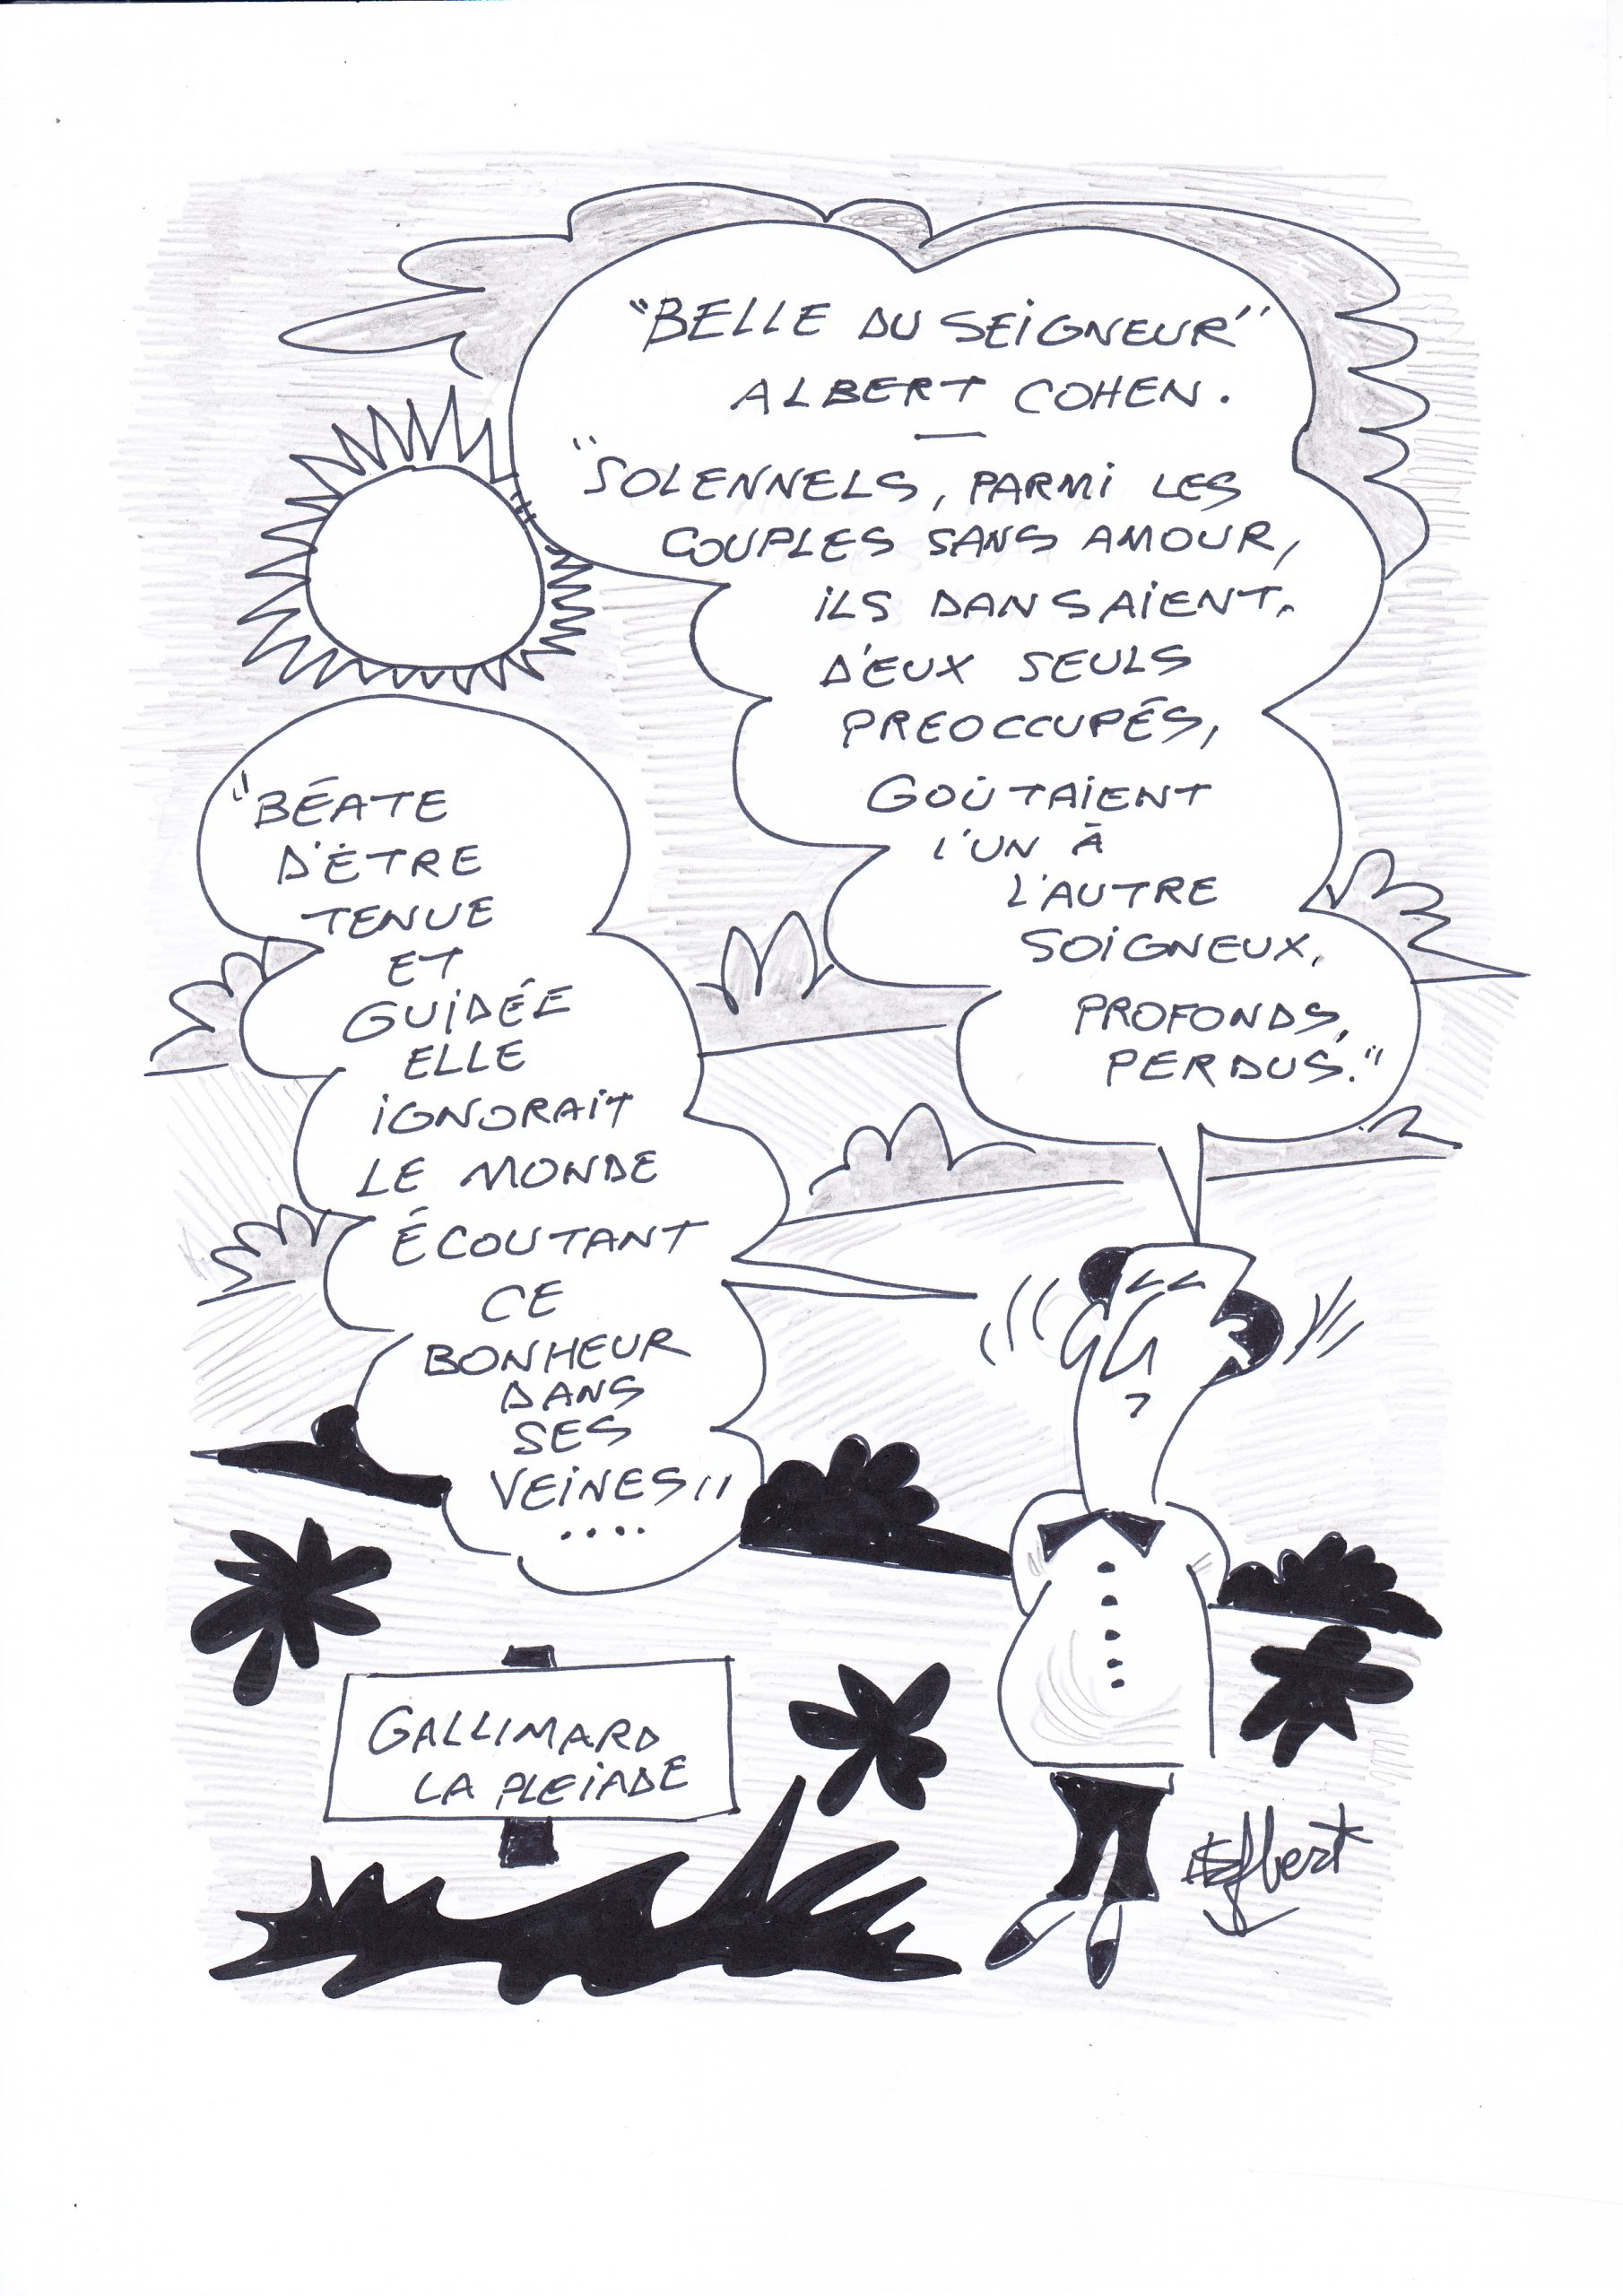 "BELLE DU SEIGNEUR"
ALBERT COHEN.
—
"SOLENNELS, PARMI LES
COUPLES SANS AMOUR,
ILS DANSAIENT.
D'EUX SEULS
PREOCCUPÉS,
GOÛTAIENT
L'UN À
L'AUTRE
SOIGNEUX,
PROFONDS,
PERDUS."
"BÉATE
D'ÊTRE
TENUE
ET
GUIDÉE
ELLE
IGNORAIT
LE MONDE
ÉCOUTANT
CE
BONHEUR
DANS
SES
VEINES"
....
GALLIMARD
LA PLEIADE